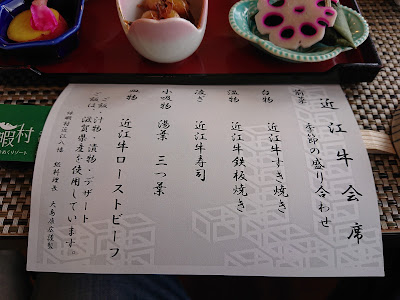 近江牛会席
前菜 季節の盛り合わせ
台物 近江牛すき焼き
温物 近江牛鉄板焼き
凌ぎ 近江牛寿司
小吸物 湯葉 三つ葉
皿物 近江牛ローストビーフ
ご飯・汁物・漬物・デザート
ご飯は、滋賀県産を使用しています。
休暇村近江八幡 総料理長
暇村